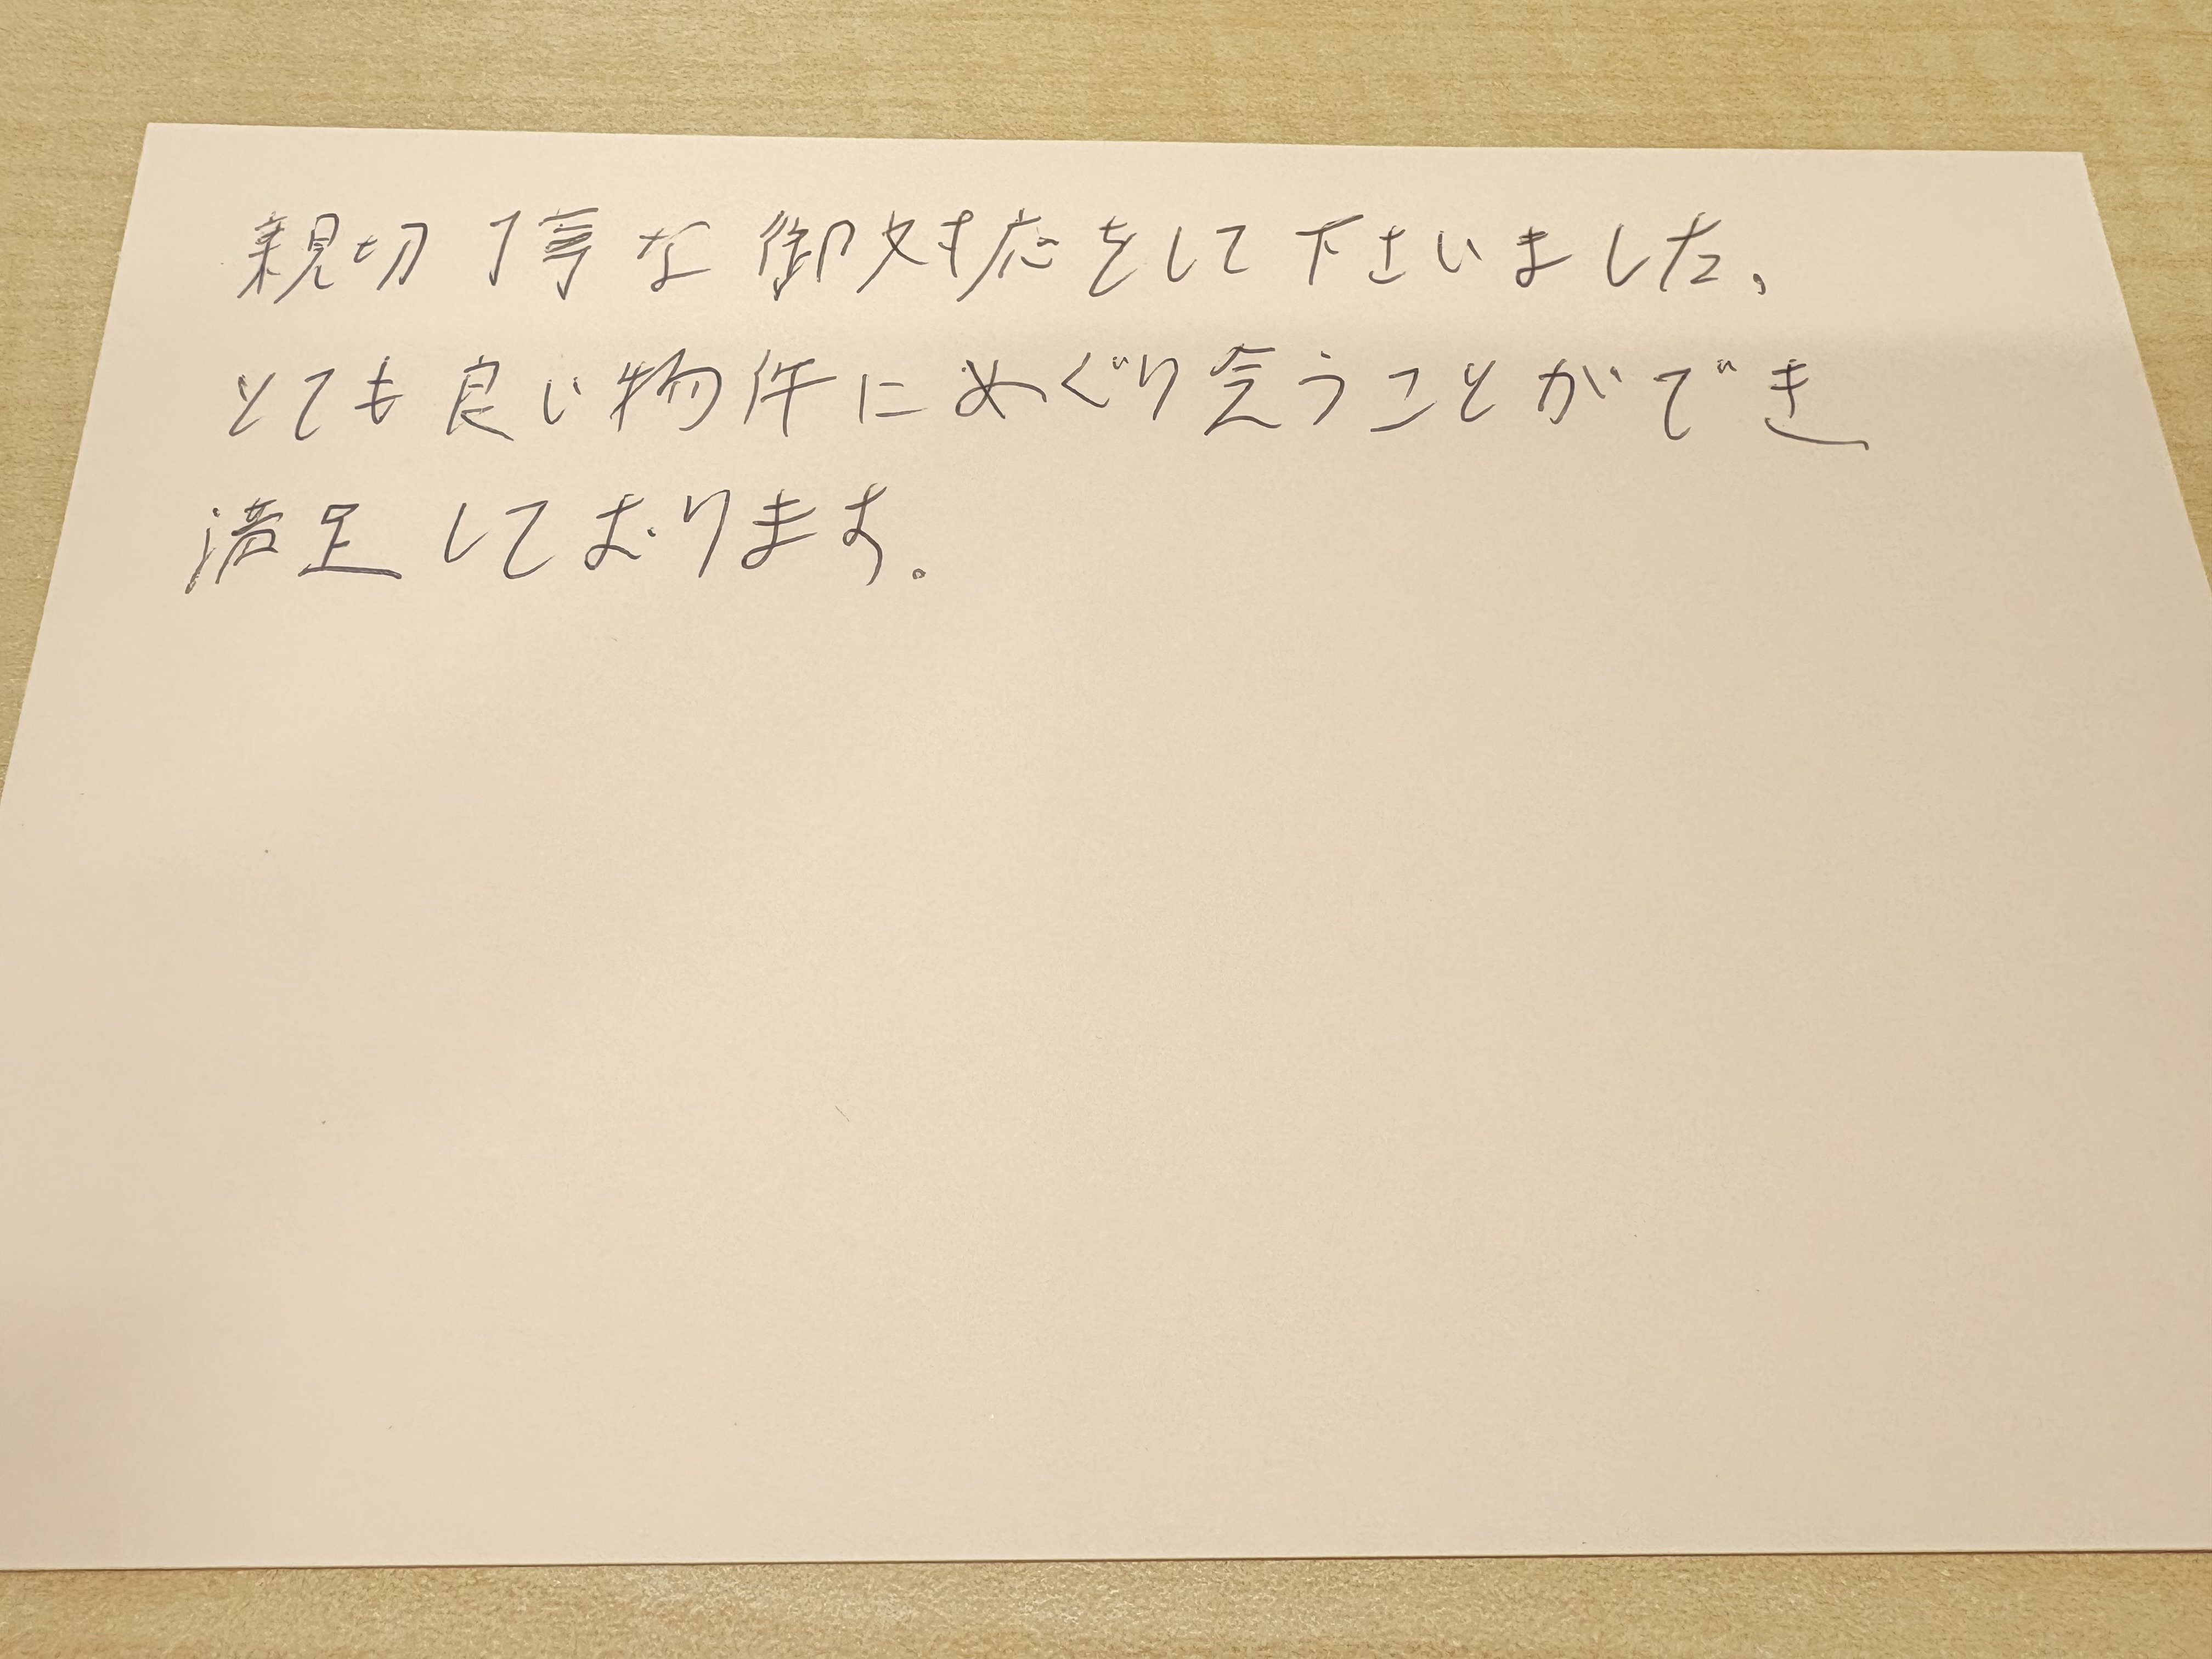 親切丁寧な御対応をして下さいました、
とても良い物件にめぐり会うことができ
満足しております。